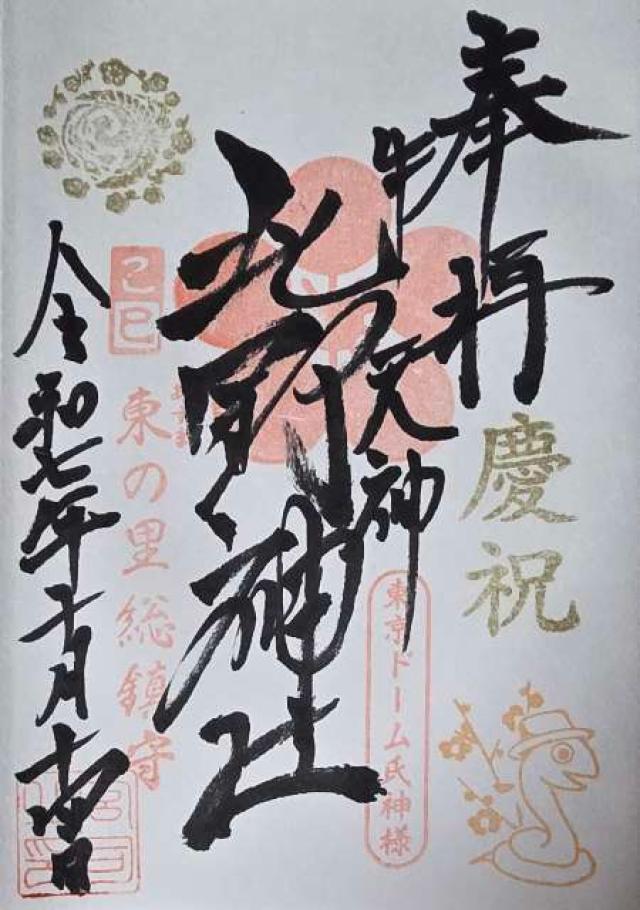 奉拝
慶祝
牛天神
東京ドーム氏神様
北野神社
己巳
東の里総鎮守
令和七年